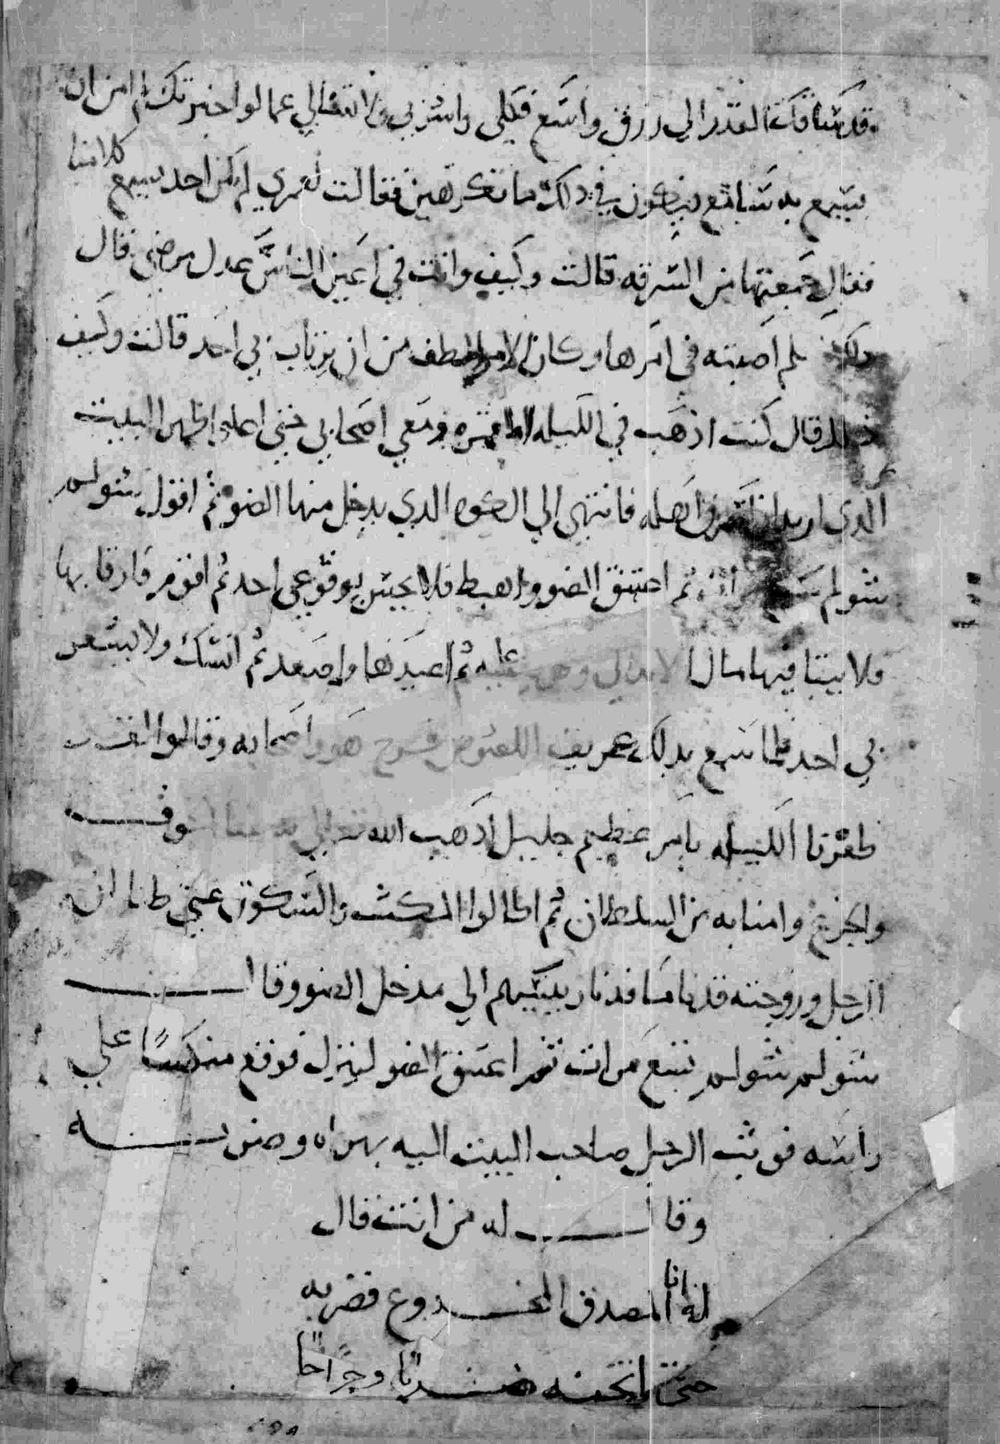 قد ساقك القدر الي رزق واسع فكلي واشربي ولا تسالي عما لو اخبرتك لم امن ان
يسمع به سامع فيكون في ذلك ما تكرهين فقالت لعمري لم يكن احد يسمع كلامنا
فقال جمعتها من السرقه قالت وكيف وانت في اعين الناس عدل مرضي قال
ذلك لعلم اصبته في امرها وكان الامر الطف من ان يرتاب بي احد قالت وكيف
ذلك قال كنت اذهب في الليله المقمره ومعي اصحابي حتي اعلو اظهر البيت
الذي اريد ان اسرق اهله فانتهي الي الكوه الذي يدخل منها الضو ثم اقول شولم
شولم سبع مرات ثم اعتنق الضو واهبط فلا يحس بوقوعي احد ثم اقوم فارقا بها
فلا يبقا فيها مالا الا بدا لي وهي عليه ثم اعيدها واصعد ثم انسك ولا يشعر
بي احد فلما سمع بذلك عريف اللصوص فرح هو واصحابه وقالوا لقد
ظفرنا الليله بامر عظيم جليل اذهب الله تعالي به عنا الخوف
والجزع وامنا به من السلطان ثم اطالوا المكث والسكوت حتي ظنا ان
الرجل وزوجته قد ناما فدنا رييسهم الي مدخل الضو وقال
شولم شولم سبع مرات ثم اعتنق الضو لينزل فوقع منكسا علي
راسه فوثب الرجل صاحب البيت اليه بهراوه وضربه
وقال له من انت قال
له انا المصدق المخدوع فضربه
حتي اثخنه ضربا وجراحا